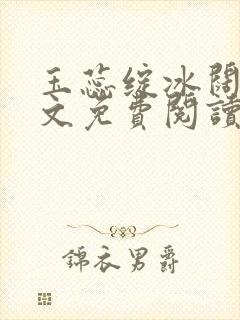 玉蕊绽冰闊
文免費閱讀
錦衣男爵